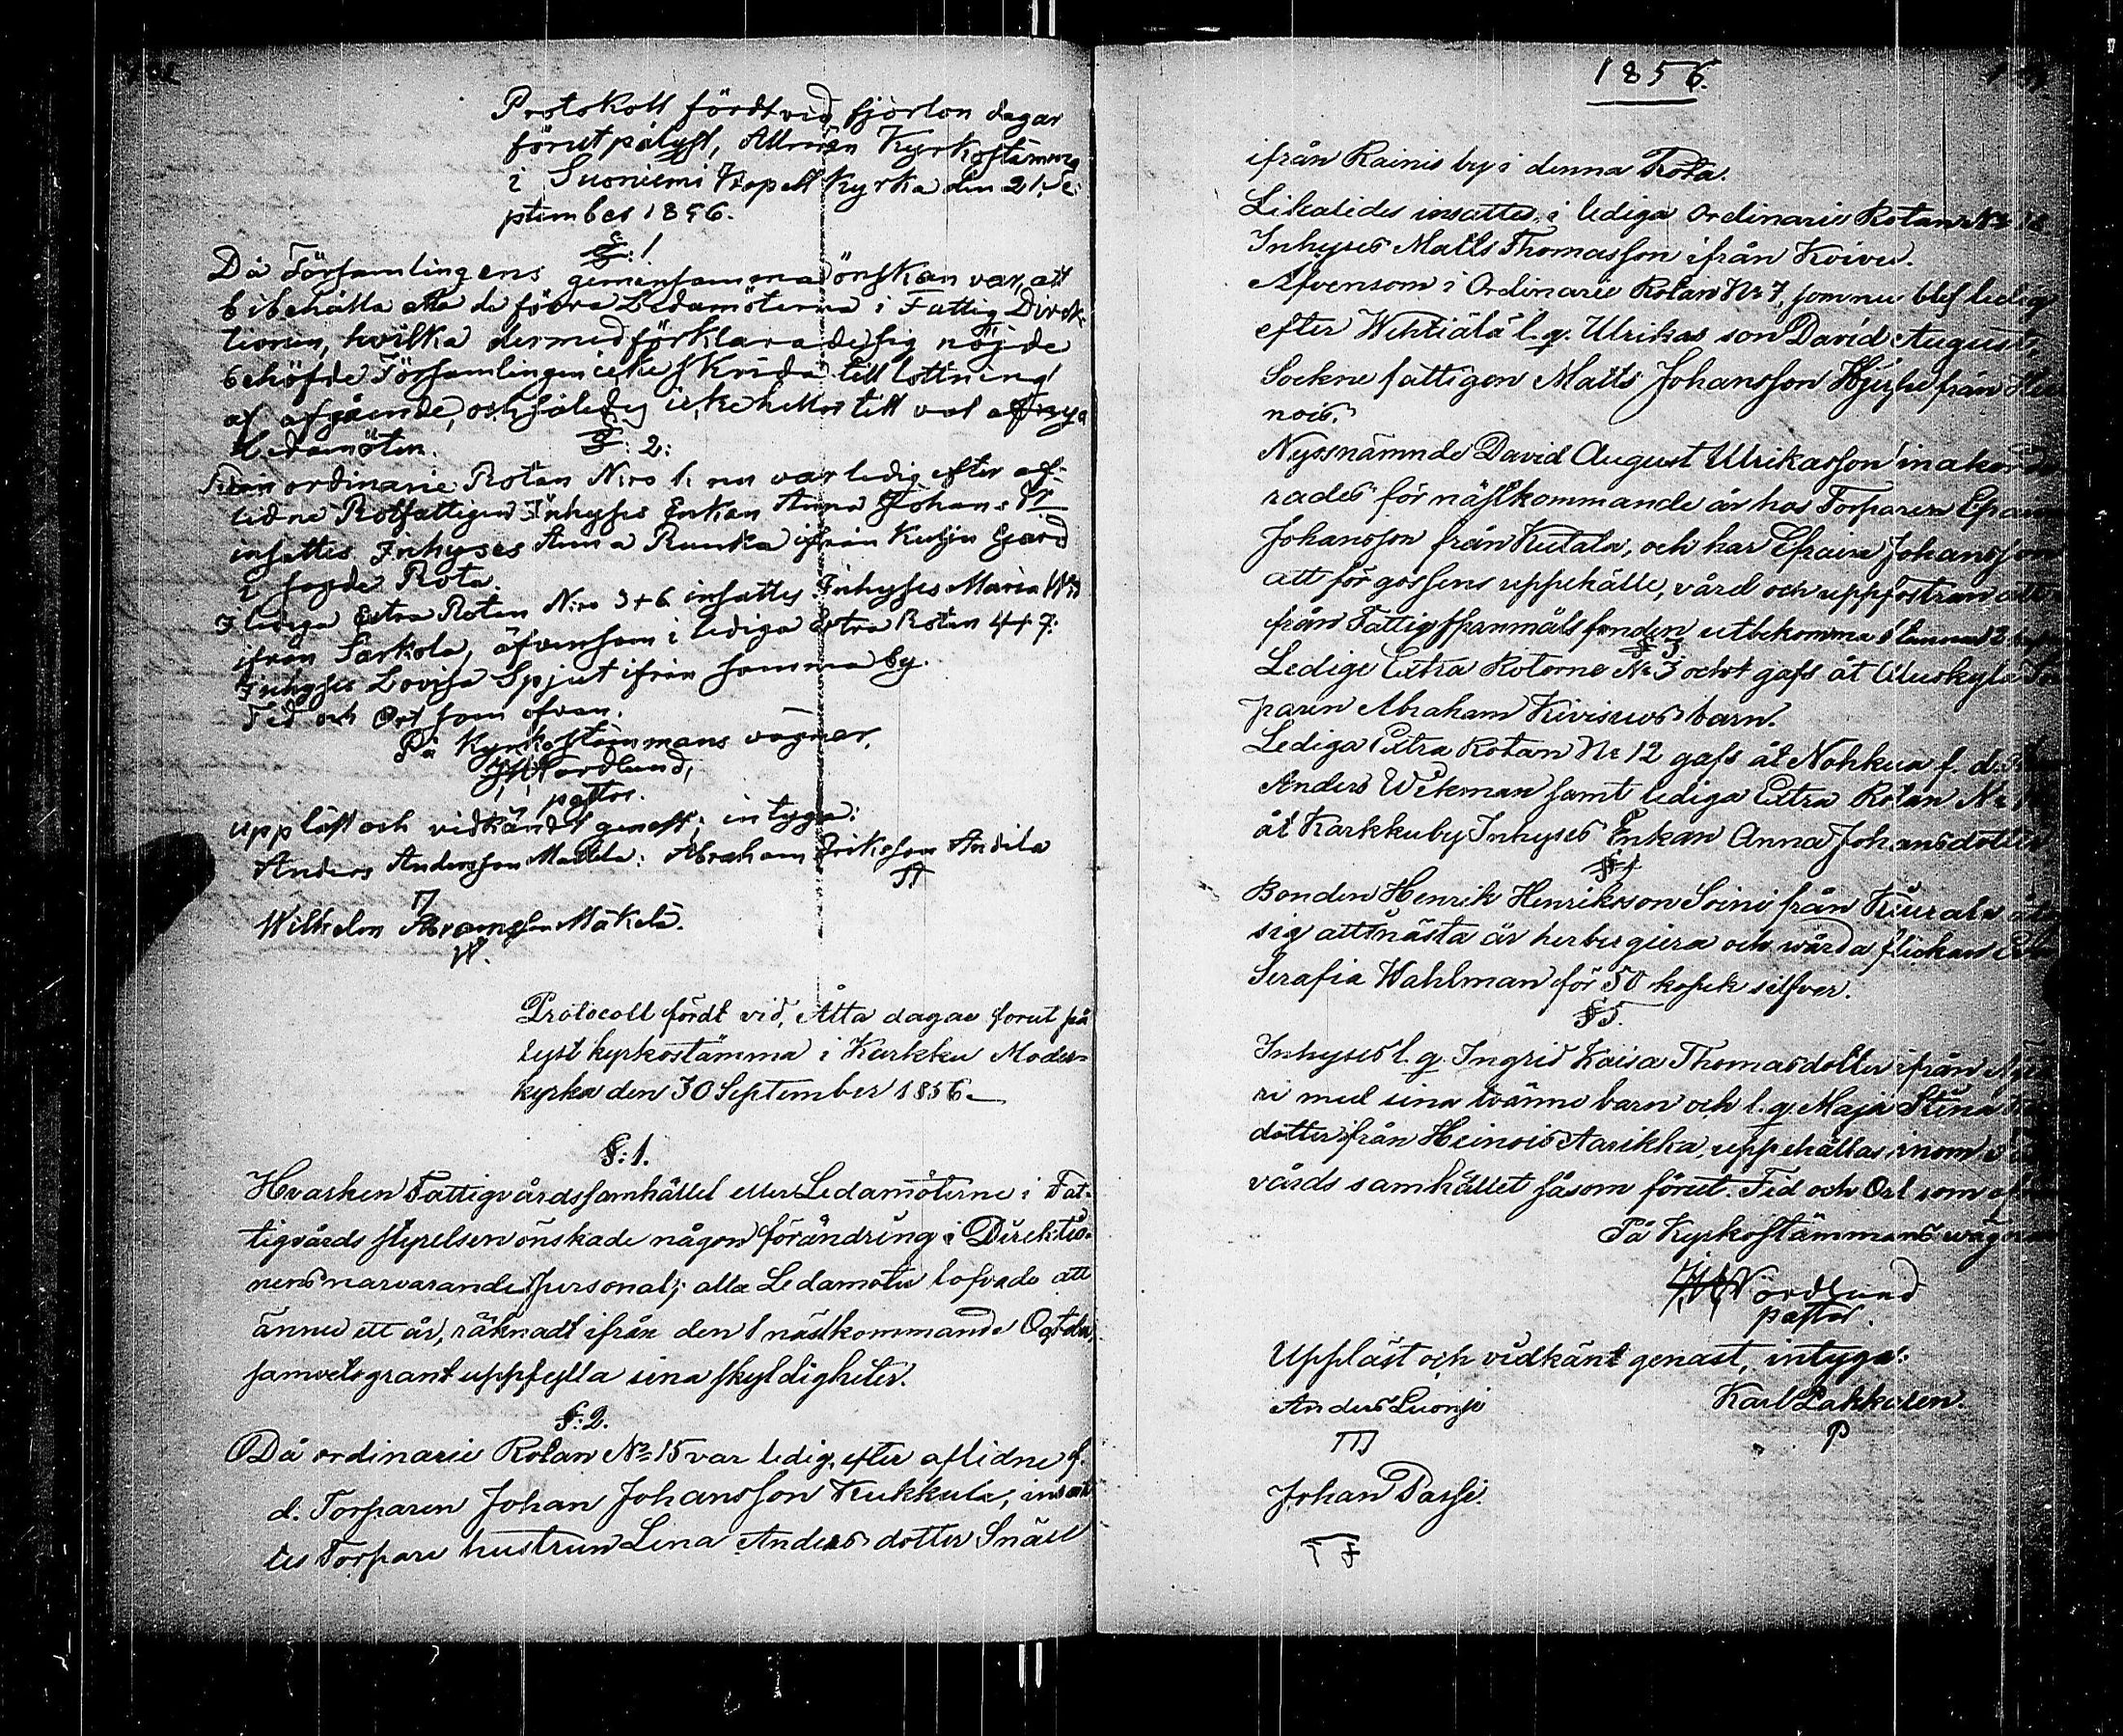 Protokoll fördt vid, fjorton dagar
förut pålyst, Allmän Kyrkostämma
i Suoniemi Kapell Kyrka den 21. Se-
ptember 1856.
§: 1.
Då Församlingens gemensamma önskan var, att
bibehålla alla de förra Ledamöterna i Fattig Direk-
tionen, hvilka dermed förklarade sig nöjde
behöfde Församlingen icke skrida till lottning
af afgående, och således icke heller till val af nya
Ledamöter.
§: 2:
ordinarie Rotan N:ro 1. nu var ledig efter af-
lidne Rotfattigen Inhyses Enkan Anna Johans dr
insattes Inhyses Anna Runka ifrån Kulju Gård
i sagde Rota.
I lediga Extra Rotan N:ro 3 + 6 insattes Inhyses Maria
ifrån Sarkola, äfvensom i lediga Extra Rotan 4 + 7:
Inhyses Lovisa Spjut ifrån samma by.
Tid och Ort som ofvan.
På Kyrkostämmans vägnar,
Nordlund,
pastor.
Uppläst och vidkändt genast; intyga:
Anders Andersson Mattila: Abraham Eriksson Anttila
Wilhelm Abramsson Mäkelä.
W.
Protocoll fördt vid, Åtta dagar förut på
lyst kyrkostämma i Karkku Moder-
kyrka den 30 September 1856.
§: 1.
Hvarken Fattigvårdssamhället eller Ledamöterne i Fat-
tigvårds styrelsen önskade någon förändring i Direktio-
nens narvarande personal; alla Ledamöter lofvade att
ännu ett år, räknadt ifrån den 1 nästkommande October,
samvetsgrant uppfylla sina skyldigheter.
§: 2.
Då ordinarie Rotan No 15 var ledig, efter aflidne f.
d. Torparen Johan Johansson Kukkula, insat
tes Torpare hustrun Lena Anders dotter Snäll
1856.
ifrån Rainis by i denna Rota.
Likaledes insattes i lediga Ordinarie Rotan No
Inhyses Matts Thomasson ifrån Koivu.
Äfvensom i Ordinarie Rotan No 7, som nu blef ledig
efter Wehtiälä l.q. Ulrikas son David August,
Sockne fattigen Matts Johansson från
nois.
Nyssnämnde David August Ulrikasson
rades för nästkommande år hos Torparen
Johansson från Kutala, och har Efraim Johansson
att för gossens uppehälle, vård och uppfostran
från Fattig spanmåls fonden utbekomma
§ 3
Lediga Extra Rotorne No 3 och gafs åt
paren Abraham Kivisuos barn.
Lediga Extra Rotan No 12 gafs åt Nohkua f. d.
Anders Wikman samt lediga Extra Rotan No
åt Karkkuby Inhyses Enkan Anna Johansdotter
§ 4
Bonden Henrik Henriksson Soini från Kiurala
sig att nästa år herbergera och vårda flickan
Serafia Wahlman för 50 kopek silfver.
§ 5.
Inhyses l.q. Ingrid Kaisa Thomasdotter ifrån
ri med sina tvänne barn och l.q. Maja Stina
dotter ifrån Heinois Aarikka, uppehållas inom
vårds samhället såsom förut. Tid och Ort som
På Kyrkostämmans vägnar
Nordlund
pastor.
Uppläst och vidkänt genast, intyga:
Anders Luonsi Karl Lakkalen.
P
Johan Passi.